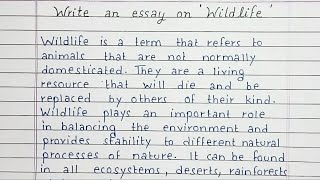 Write an essay on 'Wildlife'
Wildlife is a term that refers to
animals that are not normally
domesticated. They are a living
resource that will die and be
replaced by others of their kind.
Wildlife plays an important role
in balancing the environment and
provides stability to different natural
processes of nature. It can be found
in all ecosystems, deserts, rainforests